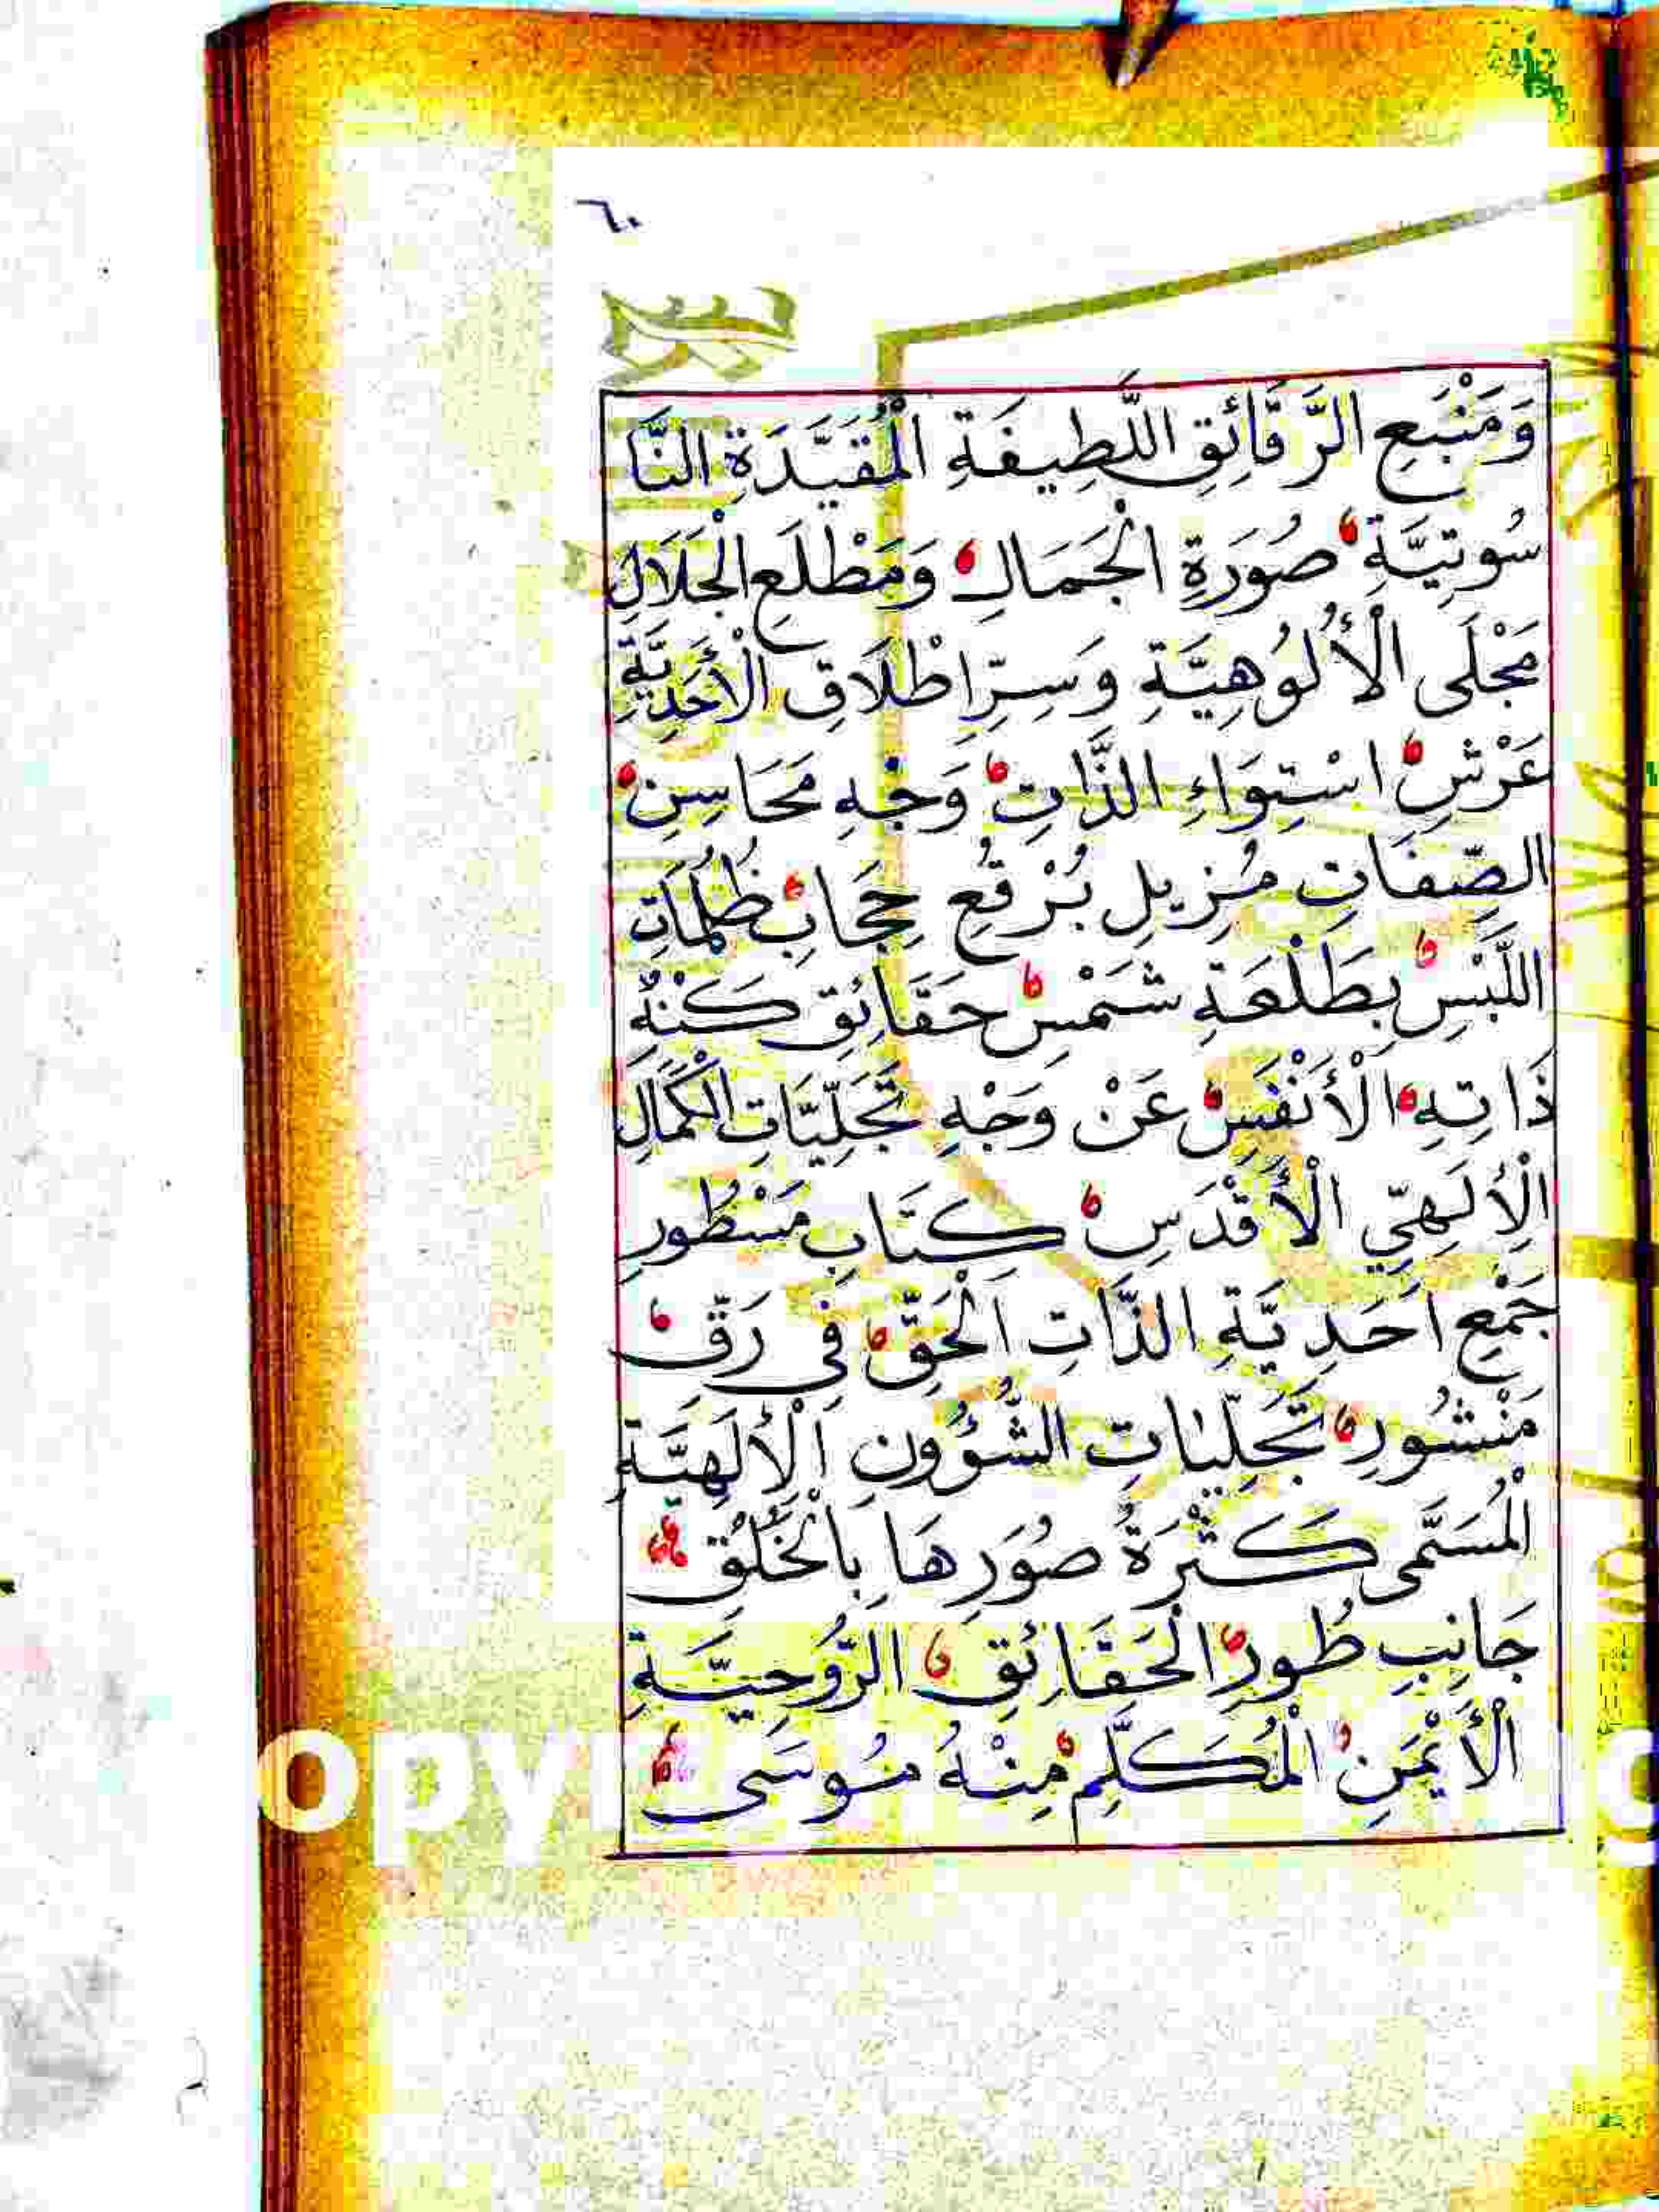 ٦٠
وَمَنْبَعِ الرَّقَّائِقِ اللَّطِيفَةِ الْمُقَيَّدَةِ النَّا
سُوتِيَّةِ صُورَةِ الْجَمَالِ وَمَطْلَعِ الْجَلَالِ
مَجْلَى الْأُلُوهِيَّةِ وَسِرِّ اطْلَاقِ الْأَحَدِيَّةِ
عَرْشِ اسْتِوَاءِ الذَّاتِ وَجْهِ مَحَاسِنِ
الصِّفَاتِ مُزِيلِ بُرْقُعِ حِجَابِ ظُلُمَاتِ
اللَّبْسِ بِطَلْعَةِ شَمْسِ حَقَائِقِ كُنْهِ
ذَاتِهِ الْأَنْفَسِ عَنْ وَجْهِ تَجَلِّيَّاتِ الْكَمَالِ
الْإِلَهِيِّ الْأَقْدَسِ كِتَابِ مَسْطُورِ
جَمْعِ اَحَدِيَّةِ الذَّاتِ الْحَقِّ فِي رَقِّ
مَنْشُورِ تَجَلِّيَاتِ الشُّؤُونِ الْإِلَهِيَّةِ
الْمُسَمَّى كَثْرَةُ صُوَرِهَا بِالْخَلْقِ
جَانِبِ طُورِ الْحَقَائِقِ الرُّوحِيَّةِ
الْأَيْمَنِ الْمُكَلَّمِ مِنْهُ مُوسَى